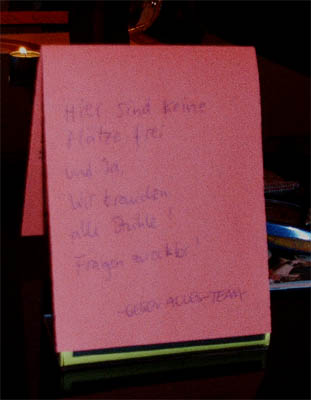 Hier sind keine
Plätze frei
und Ja,
Wir brauchen
alle Stühle!
Fragen zwecklos!
-GEGEN ALLES-TEAM-